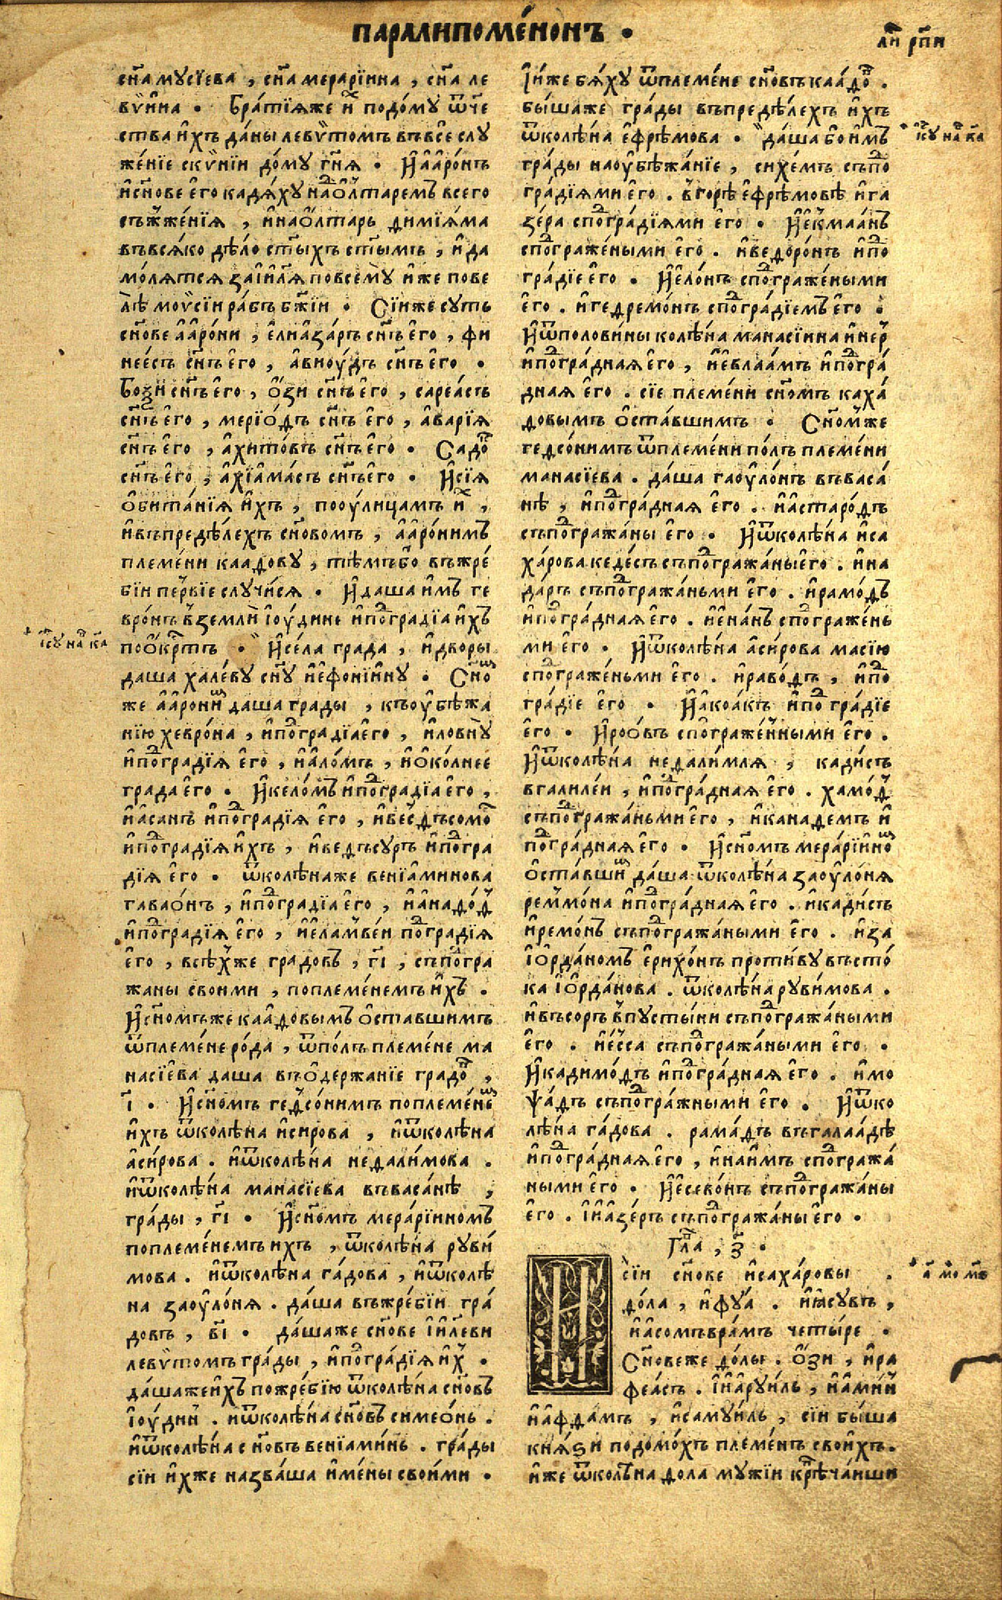 ПАРАЛИПОМЕ́НОНЪ .
сн҃а мусїева , сн҃а мерарїина , сн҃а ле
вѷина . Бра́тїяже и҆х подому ѿче
ства и҆хъ да́ны левѷтомъ въвсѐ слу
же́нїе скѷнїи до́му гн҃я . И҆ а҆аро́нъ
и҆сн҃ове е҆го кадяху наѻ҆лтаремъ всего
съжже́нїя , и҆наѻ҆лтарь димїя́ма
въвсяко дѣ́ло ст҃ыхъ ст҃ымъ , и҆ да
мо́лятся заі҆и҃ля повсемꙋ̀ и҆же пове
лѣ̀ моѷсїи ра́бъ бж҃їи . Сїи же суть
сн҃ове а҆аро́ни , е҆лиаза́ръ сн҃ъ е҆го , фи
нее́съ сн҃ъ е҆го , авиоу́дъ сн҃ъ е҆го .
Боѕзи сн҃ъ е҆го , ѻ҆́зи сн҃ъ е҆го , сареа́съ
сн҃ъ е҆го , мерїо́дъ сн҃ъ е҆го , а҆варі́я
сн҃ъ е҆го , а҆хито́въ сн҃ъ е҆го . Садо́к
сн҃ъ е҆го , а҆хїама́съ сн҃ъ е҆го . И҆сїя
ѻ҆бита́нїя и҆хъ , пооу́лицамъ и҆х ,
и҆въпредѣ́лехъ сн҃овомъ , а҆аро́нимъ
племе́ни каадову , тѣ́мъбо въжре́
бїи пе́рвїе случи́ся . И҆ даша и҆мъ ге
вро́нъ въземлѝ і҆оу́дине и҆поградїа и҆хъ
поѻ҆́крстъ . И҆села града , и҆дворы
даша хале́ву сн҃у и҆ефонїину . Сн҃ом
же а҆аро́ним даша грады , къоубѣжа
нїю хевро́на , и҆поградїа е҆го , и҆ловнꙋ
и҆поградїя е҆го , и҆а҆ло́мъ , и҆ѻ҆колнее
града е҆го . И҆кело́мъ и҆поградїа е҆го ,
и҆а҆санъ и҆поградїя е҆го , и҆ве́сдъсомо
и҆поградїя и҆хъ , и҆ведъсуръ и҆погра
дїя е҆го . ѿколѣ́наже венїамінова
гаваѻ́нъ , и҆поградїа е҆го , и҆а҆надо́д
и҆поградїя е҆го , и҆е҆ламве́н поградїя
е҆го , всѣ́хже градовъ , г҃і , съпогра
жаны своими , поплеме́немъ и҆хъ .
И҆сн҃омъже каадовымъ ѻ҆ставшимъ
ѿплеме́не ро́да , ѿпо́лъ племене ма
насїева даша въѻ҆держанїе градов ,
і҃ . И҆сн҃омъ гедсо́нимъ поплеме́нем
и҆хъ ѿколѣ́на и҆сирова , и҆ѿколѣ́на
а҆си́рова . и҆ѿколѣ́на недали́мова .
и҆ѿколѣ́на манасїева въваса́нѣ ,
гра́ды , г҃і . И҆сн҃омъ мерарїиномъ
поплеме́немъ и҆хъ , ѿколѣ́на руви́
мова . и҆ѿколѣ́на га́дова , и҆ѿколѣ́
на заоуло́ня . даша въжре́бїи гра́
довъ , в҃і . да́шаже сн҃ове і҆и҃леви
левѷтомъ гра́ды , и҆поградїя и҆х .
да́шаже и҆хъ пожре́бїю ѿколѣ́на сн҃овъ
і҆оу́дин . и҆ѿколѣ́на сн҃овъ симео́нь .
и҆ѿколѣ́на сн҃овъ венїами́нь . гра́ды
сїи и҆хже назва́ша и҆ме́ны свои́ми .
+ і҆су на҃ в҃ к҃а
л҃и рп҃и
І҆и́же бяху ѿплеме́не сн҃овъ каа́дов .
бы́шаже гра́ды въпредѣ́лехъ и҆хъ
ѿколѣ́на е҆фре́мова . даша бо и҆мъ
гра́ды наоубѣжанїе , сихе́мъ съпо
гра́дїями е҆го . въгорѣ̀ е҆фрѣ́мовѣ и҆га
зе́ра спогра́дїями е҆го . И҆екмаа́нъ
спограже́ными е҆го . и҆ведоро́нъ и҆по
гра́дїе е҆го . И҆е҆ло́нъ спограже́ными
е҆го . и҆гедремо́нъ спогра́дїемъ е҆го .
И҆ѿполови́ны колѣ́на манасїина и҆нер
и҆погра́дная е҆го , и҆е҆влаа́мъ и҆погра́
дная е҆го . сїе племе́ни сн҃омъ каха́
довымъ ѻ҆ста́вшимъ . Сн҃омже
гедсо́нимъ ѿплемени по́лъ племе́ни
манасїева . даша гаоуло́нъ въваса́
нѣ , и҆погра́дная е҆го . и҆а҆старо́дъ
съпогражаны е҆го . И҆ѿколѣ́на и҆са
ха́рова кеде́съ съпогражаны е҆го . и҆на
да́ръ съпогража́ньми е҆го . и҆рамо́дъ
и҆погра́дная е҆го . и҆е҆на́нъ спограже́нь
ми е҆го . И҆ѿколѣ́на а҆си́рова масі́ю
спограже́ньми е҆го . и҆раво́дъ , и҆по
гра́дїе е҆го . И҆а҆коа́къ и҆погра́дїе
е҆го . И҆роо́въ спограже́нными е҆го .
И҆ѿколѣ́на недали́мля , кади́съ
вгалиле́и , и҆погра́дная е҆го . хамо́д
съпогража́ньми е҆го , и҆кана демъ и҆
погра́дная е҆го . И҆сн҃омъ мерарїином
ѻ҆ставшим даша ѿколѣ́на заоуло́ня
ремво́на и҆погра́дная е҆го . и҆кади́съ
и҆ремо́нъ съпогража́ными е҆го . и҆за
і҆ѻрда́номъ е҆рихо́нъ проти́ву въсто́
ка і҆ѻрда́нова . ѿколѣ́на руви́мова .
и҆въсоръ въпусты́ни съпогража́ными
е҆го . и҆е҆́сса съпогража́ными е҆го .
И҆кадимо́дъ и҆погра́дная е҆го . и҆мо
ѱа́дъ съпогра́жными е҆го . И҆ѿко
лѣ́на га́дова . рама́дъ въгалаа́дѣ
и҆погра́дная е҆го , и҆наи́мъ спогражá
ными е҆го . И҆есево́нъ съпогража́ны
е҆го . і҆и҆азе́ръ съпогража́ны е҆го .
Гла҃ , з҃ .
И
сїи сн҃ове и҆саха́ровы .
до́ла , и҆фуа́ . и҆и҆ясувъ ,
и҆и҆асомъвра́мъ четы́ре .
Сн҃овеже до́лы . ѻ҆́зи , и҆ра
фе́асъ . і҆и҆аруи́ль , и҆а҆ми́н
и҆а҆фда́мъ , и҆самуи́ль , сїи бы́ша
кня́ѕи подомо́хъ племе́нъ свои́хъ .
и҆же ѿколѣ́на дола мужїи крѣпча́йши
* і҆су на҃ в҃ к҃а
* а҃ мо҃ мѕ҃